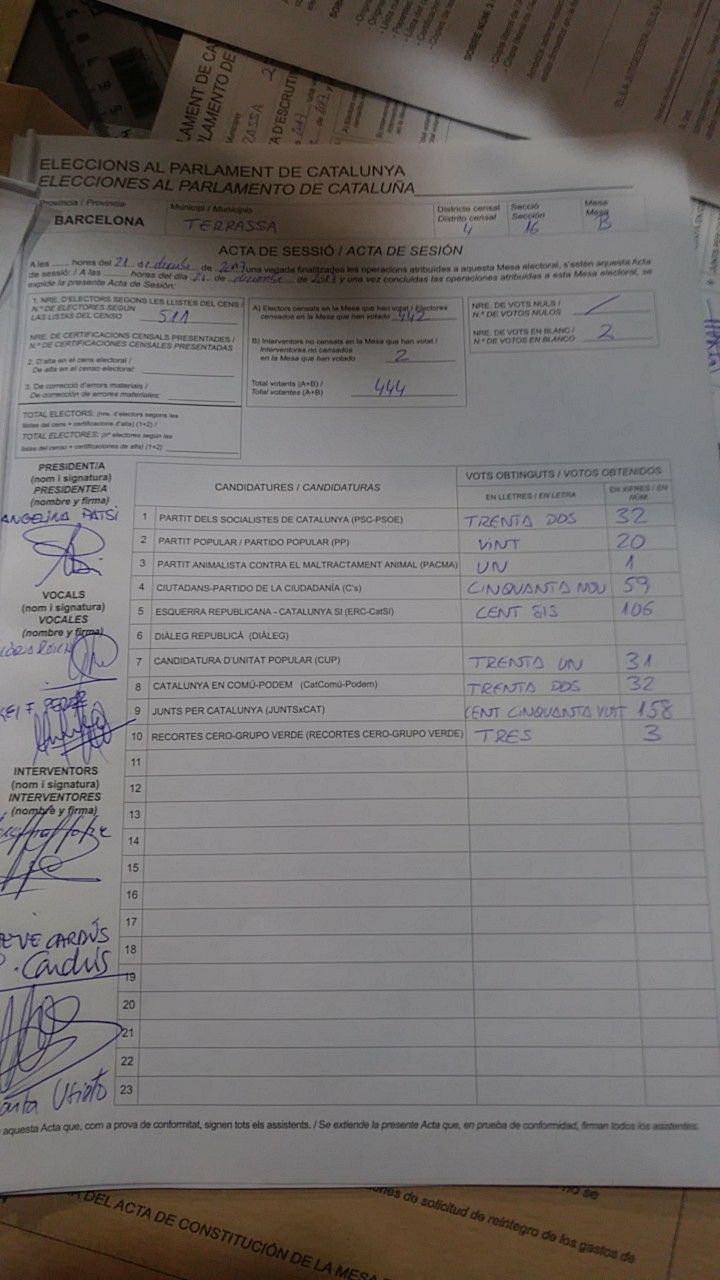 ELECCIONS AL PARLAMENT DE CATALUNYA
ELECCIONES AL PARLAMENTO DE CATALUÑA
Província / Provincia
BARCELONA
Municipi / Municipio
TERRASSA
Districte censal
Distrito censal
4
Secció
Sección
16
Mesa
Mesa
B
ACTA DE SESSIÓ / ACTA DE SESIÓN
A les ...... hores del 21 de desembre de 2017 una vegada finalitzades les operacions atribuïdes a aquesta Mesa electoral, s'estén aquesta Acta
de sessió: / A las ...... horas del día 21 de diciembre de 2017 y una vez concluidas las operaciones atribuidas a esta Mesa electoral, se
expide la presente Acta de Sesión:
1. NRE. D'ELECTORS SEGONS LES LLISTES DEL CENS /
N.º DE ELECTORES SEGÚN
LAS LISTAS DEL CENSO
511
NRE. DE CERTIFICACIONS CENSALS PRESENTADES /
N.º DE CERTIFICACIONES CENSALES PRESENTADAS
2. D'alta en el cens electoral /
De alta en el censo electoral:
3. De correcció d'errors materials /
De corrección de errores materiales:
TOTAL ELECTORS: (nre. d'electors segons les
llistes del cens + certificacions d'alta) (1+2) /
TOTAL ELECTORES: (nº electores según las
listas del censo + certificaciones de alta) (1+2)
A) Electors censats en la Mesa que han votat / Electores
censados en la Mesa que han votado 442
B) Interventors no censats en la Mesa que han votat /
Interventores no censados
en la Mesa que han votado 2
Total votants (A+B) /
Total votantes (A+B) 444
NRE. DE VOTS NULS /
N.º DE VOTOS NULOS
NRE. DE VOTS EN BLANC /
N.º DE VOTOS EN BLANCO 2
PRESIDENT/A
(nom i signatura)
PRESIDENTE/A
(nombre y firma)
VOCALS
(nom i signatura)
VOCALES
(nombre y firma)
INTERVENTORS
(nom i signatura)
INTERVENTORES
(nombre y firma)
CARDÚS
Cardús
CANDIDATURES / CANDIDATURAS
VOTS OBTINGUTS / VOTOS OBTENIDOS
EN LLETRES / EN LETRA
EN XIFRES / EN NÚM.
1 PARTIT DELS SOCIALISTES DE CATALUNYA (PSC-PSOE) TRENTA DOS 32
2 PARTIT POPULAR / PARTIDO POPULAR (PP) VINT 20
3 PARTIT ANIMALISTA CONTRA EL MALTRACTAMENT ANIMAL (PACMA) UN 1
4 CIUTADANS-PARTIDO DE LA CIUDADANÍA (C's) CINQUANTA NOU 59
5 ESQUERRA REPUBLICANA - CATALUNYA SI (ERC-CatSí) CENT SIS 106
6 DIÀLEG REPUBLICÀ (DIÀLEG)
7 CANDIDATURA D'UNITAT POPULAR (CUP) TRENTA UN 31
8 CATALUNYA EN COMÚ-PODEM (CatComú-Podem) TRENTA DOS 32
9 JUNTS PER CATALUNYA (JUNTSxCAT) CENT CINQUANTA VUIT 158
10 RECORTES CERO-GRUPO VERDE (RECORTES CERO-GRUPO VERDE) TRES 3
11
12
13
14
15
16
17
18
19
20
21
22
23
aquesta Acta que, com a prova de conformitat, signen tots els assistents. / Se extiende la presente Acta que, en prueba de conformidad, firman todos los asistentes.
DEL ACTA DE CONSTITUCIÓN DE LA MESA
de solicitud de reintegro de los gastos de